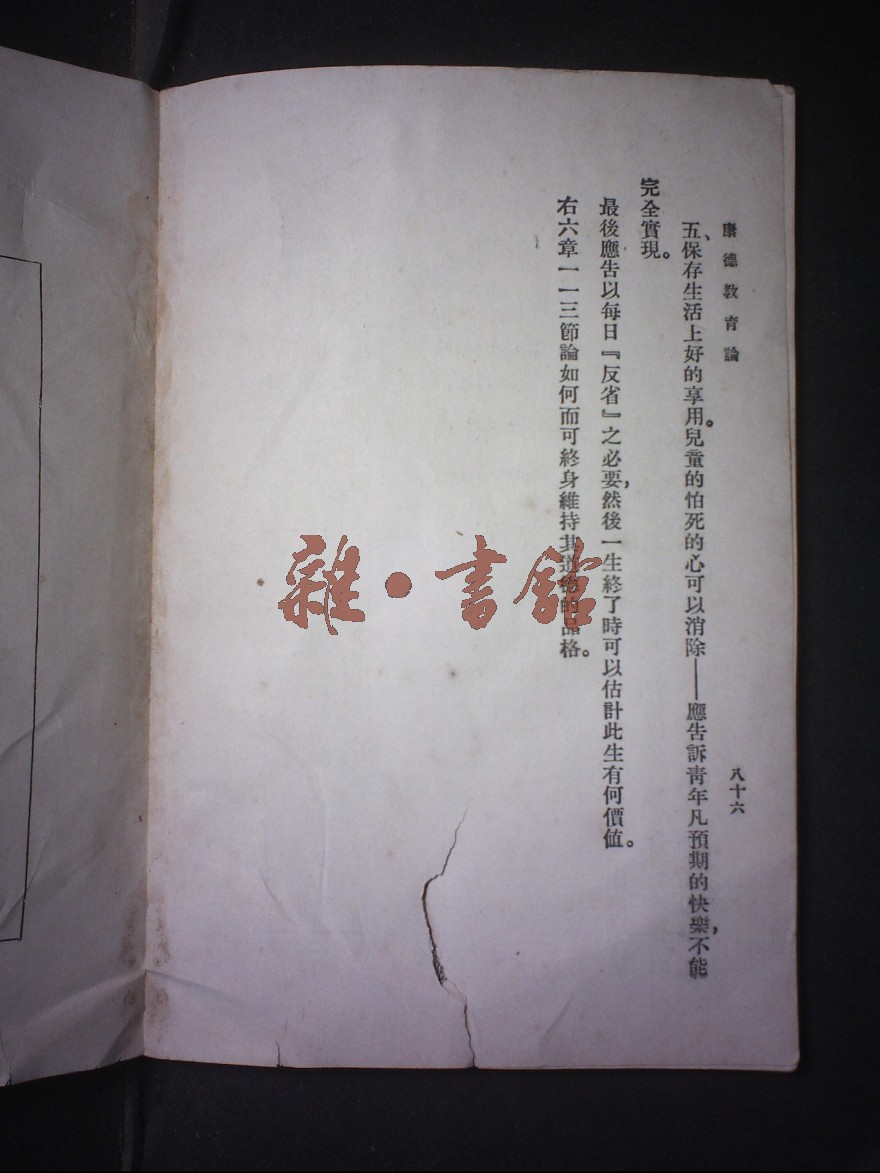 康德教育論
八十六
五、保存生活上好的享用。兒童的怕死的心可以消除——應告訴青年凡預期的快樂,不能
完全實現。
最後應告以每日『反省』之必要,然後一生終了時可以估計此生有何價值。
右六章一一三節論如何而可終身維持其道德的品格。
雜·書館